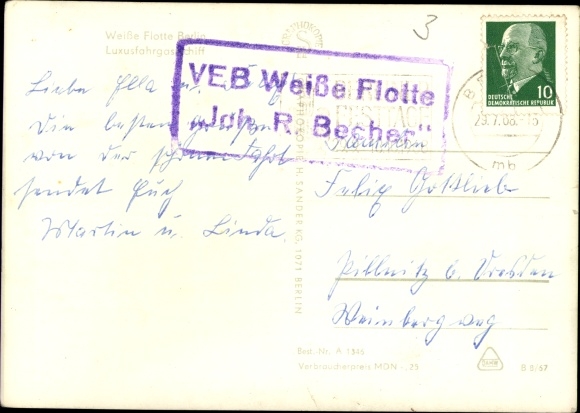 Weiße Flotte Berlin
Luxusfahrgastschiff
3
VEB Weiße Flotte
„Joh. R. Becher"
DEUTSCHE
DEMOKRATISCHE REPUBLIK
10
29.7.68.-15
mb
Liebe Ella u.
Die besten Grüße
von der schönen Fahrt
sendet Euch
Martin u. Linda.
Familien
Felix Gottlieb
Pillnitz b. Dresden
Weinbergweg
H. SANDER KG, 1071 BERLIN
Best.-Nr. A 1345
Verbraucherpreis MDN -,25
B 8/67